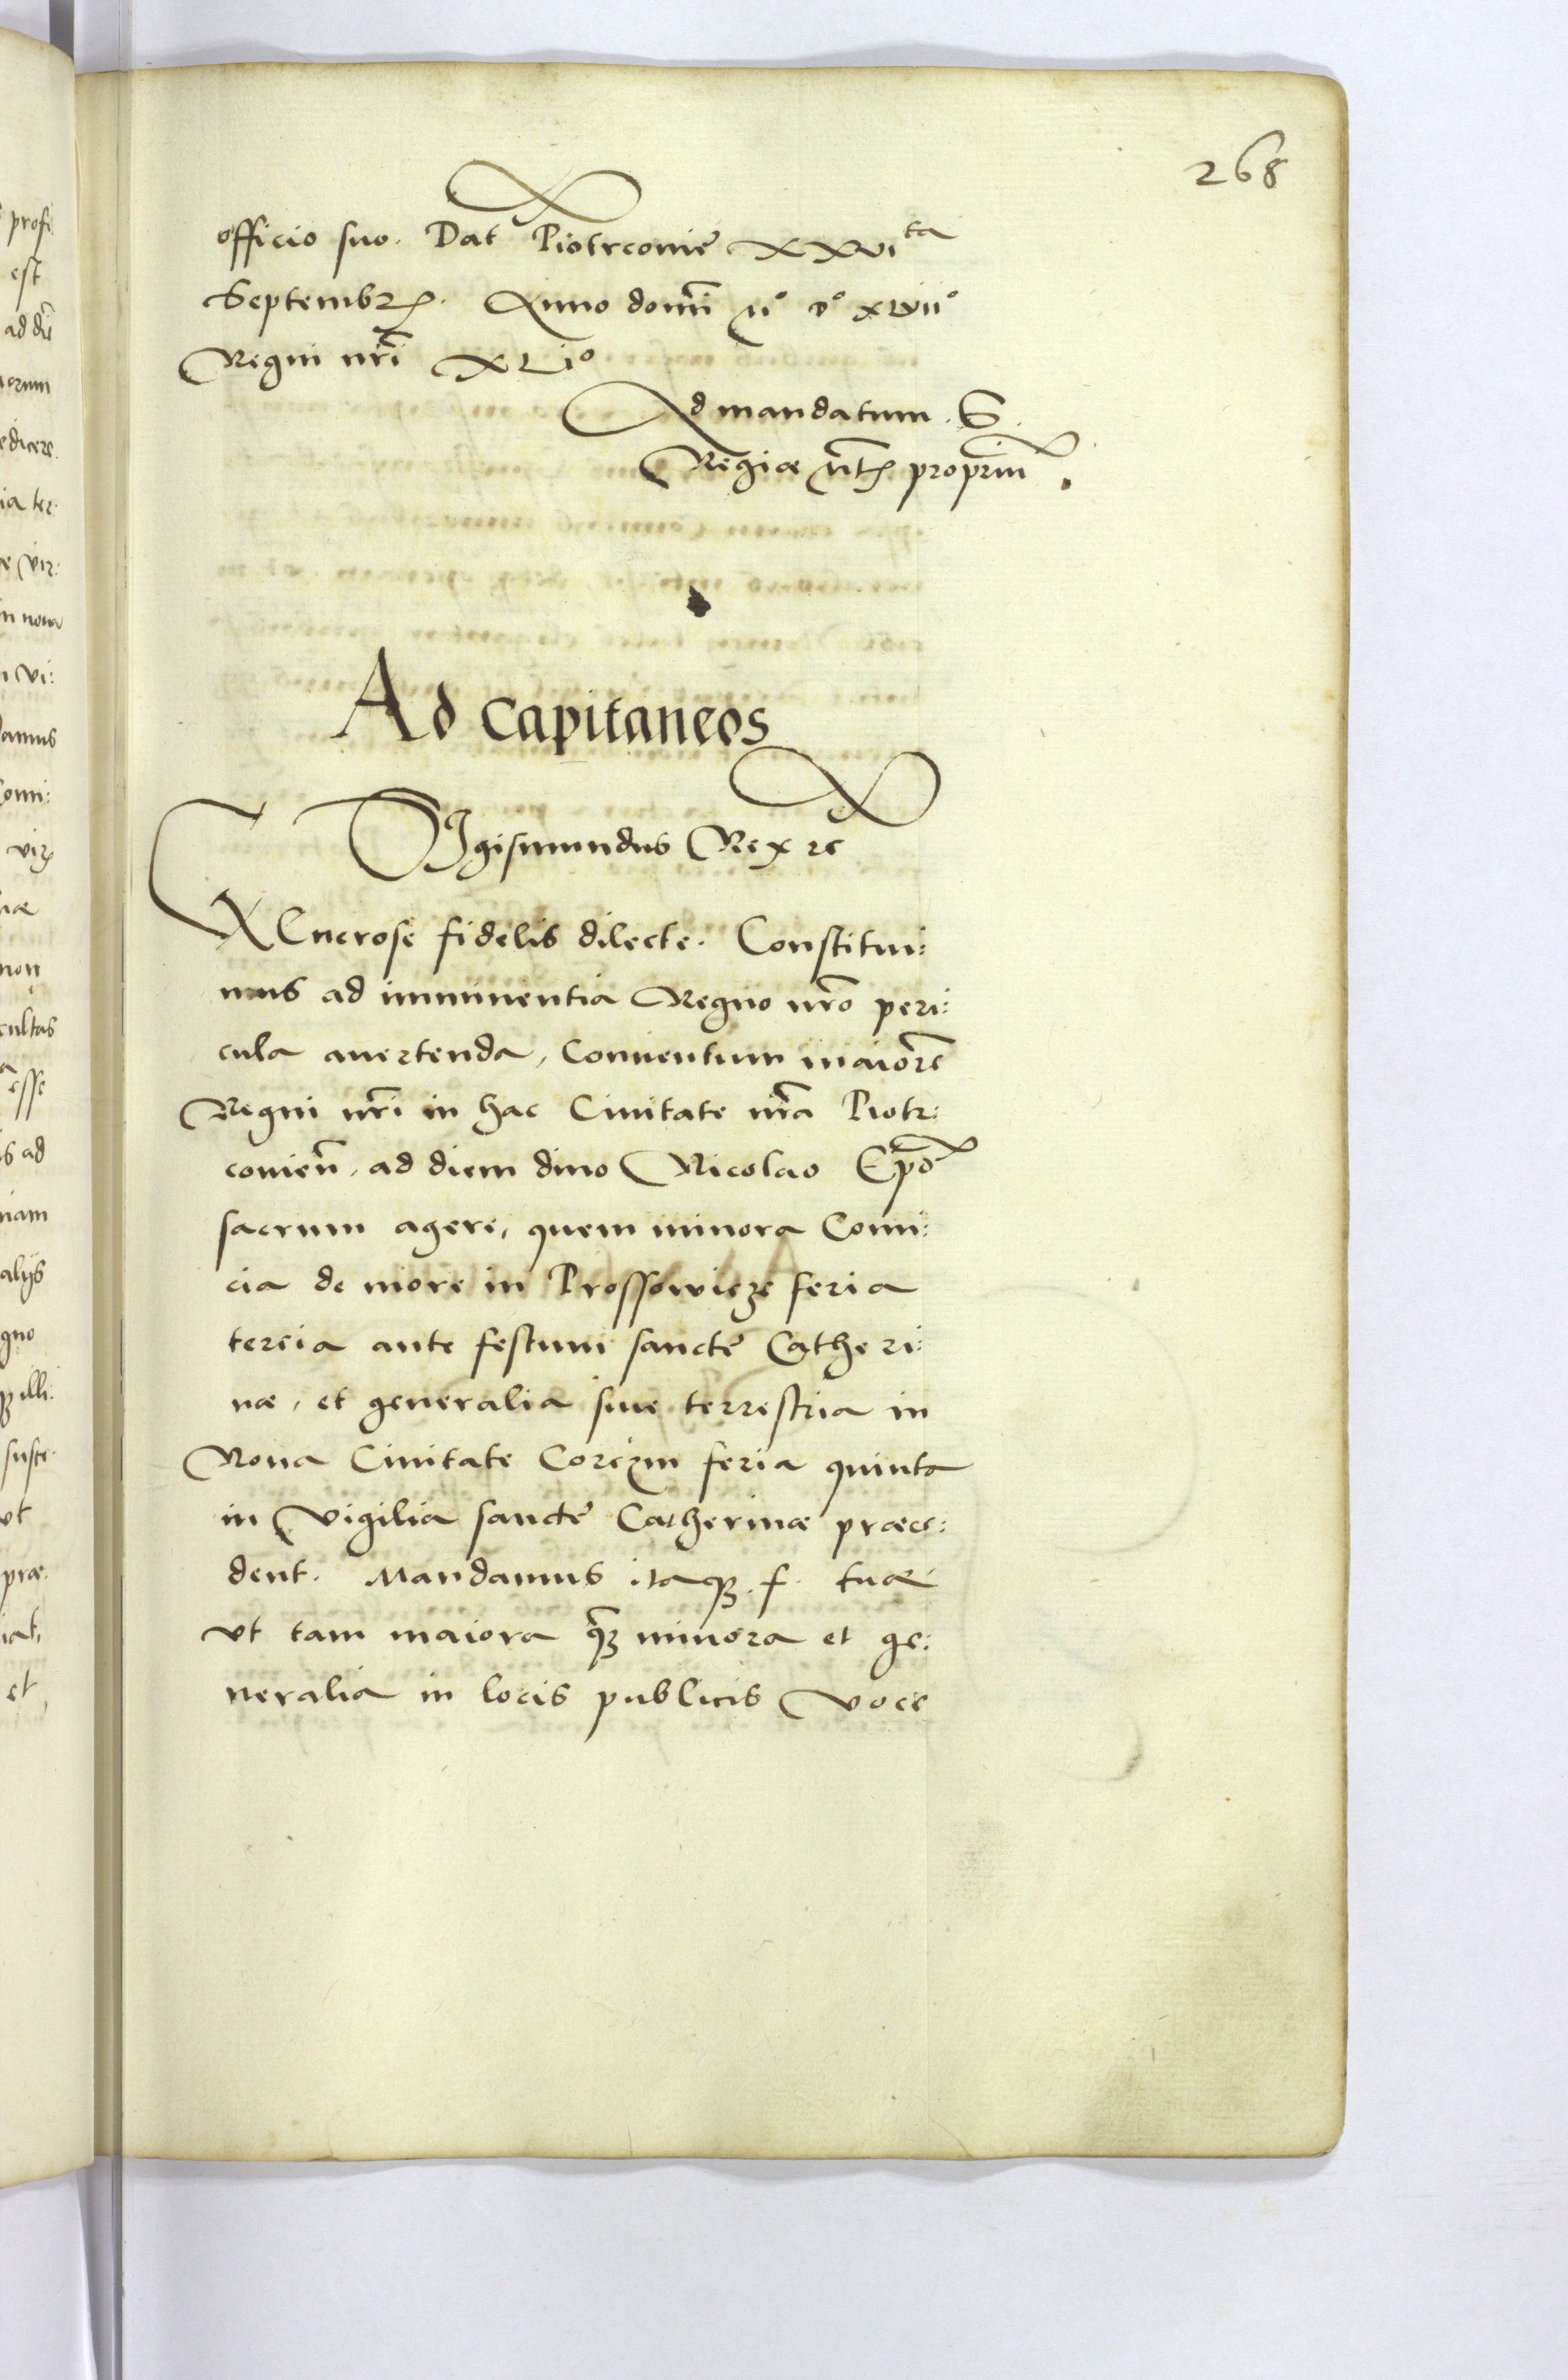 268
officio suo. Dat Piotrconię XXVI^ta
Septembrꝭ. Anno domī M° D° XLVII°
Regni nr̄i XLI°
Ad mandatum. S.
Regiæ Mtꝭ propriū.
Ad Capitaneos
SIgismundus Rex ꝛc
GEnerose fidelis dilecte. Constitui:
mus ad imminentia Regno nr̄o peri:
cula auertenda, Conuentum maiorē
Regni nr̄i in hac Ciuitate nr̄a Piotr:
conien̄, ad diem diuo Nicolao Ep̄o
sacrum agere, quem minora Comi:
cia de more in Prossowicze feria
tercia ante festum sanctę Catheri:
næ, et generalia siue terrestria in
Noua Ciuitate Corczin feria quinta
in Vigilia sanctę Catherinæ præce:
dent. Mandamus itaqꝫ f. tuæ
vt tam maiora qꝫ̄ minora et ge:
neralia in locis publicis voce